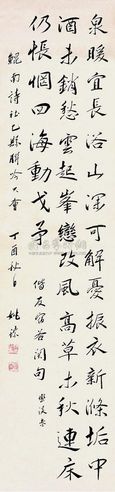 泉暖宜長浴山深可解憂振衣新滌垢中
酒未銷愁雲起峯巒改風高草木秋連床
仍悵惘四海動戈矛 偕友宿若闊句
鯤南詩社七縣聯吟大會 丁酉秋日 姚琮